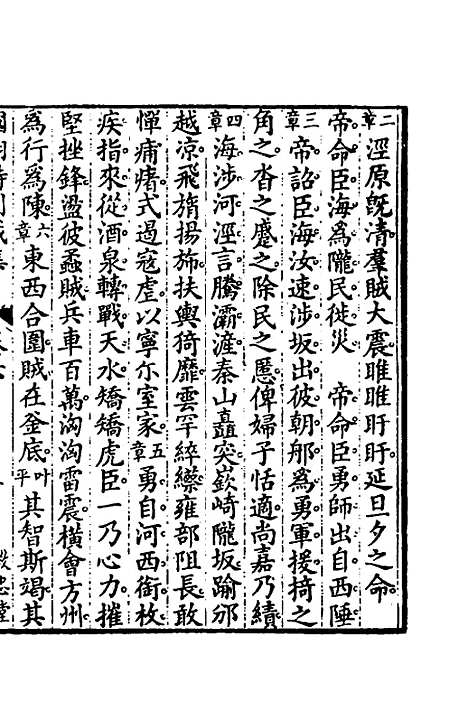 二章 涇原旣清。羣賊大震。睢睢盱盱。延旦夕之命。
帝命臣海。爲隴民徙災。 帝命臣勇。師出自西陲。
三章 帝詔臣海。汝速涉坂。出彼朝那。爲勇軍援。掎之
角之。沓之蹙之。除民之慝。俾婦子恬適。尚嘉乃績。
四章 海涉河涇。言騰灞滻。秦山矗突。嶔崎隴坂。踰邠
越涼。飛旓揚斾。扶輿猗靡。雲罕縩繠。雍部阻長。敢
憚痡瘏。式遏寇虐。以寧尓室家。五章 勇自河西。銜枚
疾指。來從酒泉。轉戰天水。矯矯虎臣。一乃心力。摧
堅挫鋒。盪彼蟊賊。兵車百萬。洶洶雷震。橫會方州。
爲行爲陳。六章 東西合圍。賊在釜底。叶平 其智斯竭。其